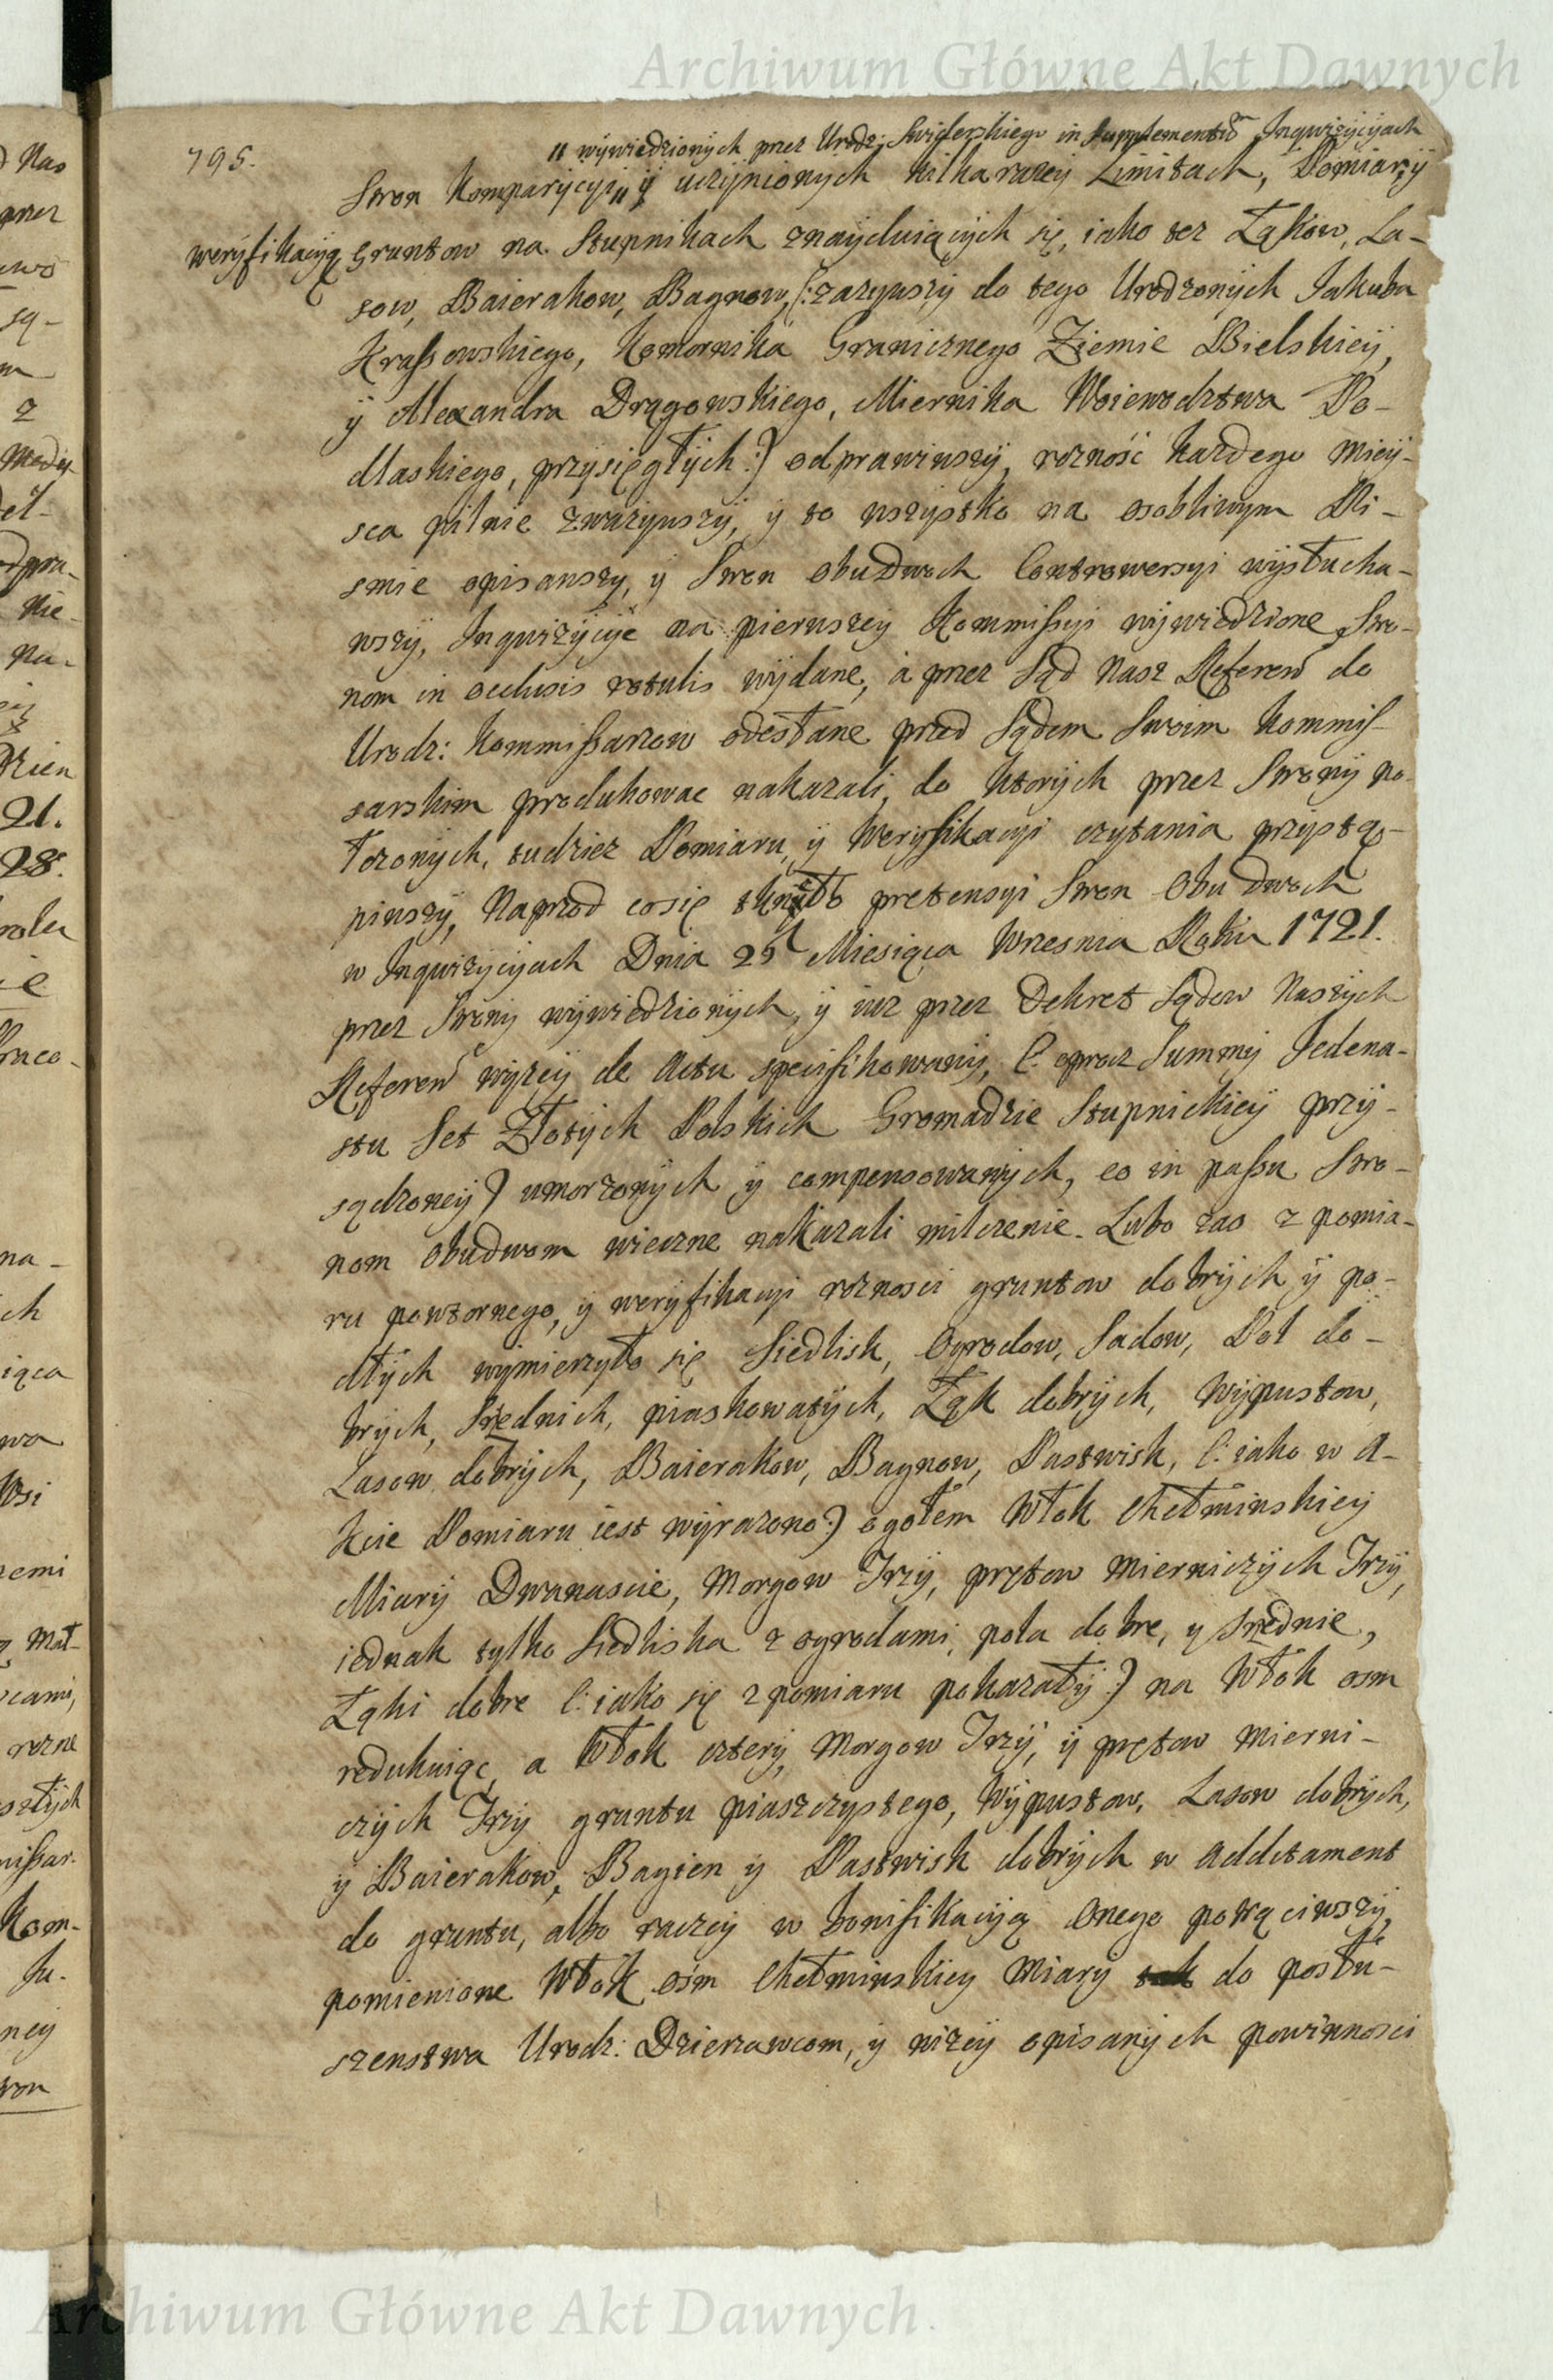 Archiwum Główne Akt Dawnych
795.
" wywiedzionych przez Urodz: Swiderskiego in Supplementũ Inqwizycyach
Stron Komparycyi " y uczynionych kilka razey Limitach, Pomiary
weryfikacyą gruntow na Stupnikach znayduiących się, iako tez Łąkow, La-
sow, Baierakow, Bagnow, (: zazywszy do tego Urodzonych Jakuba
Krassowskiego, Komornika Granicznego Ziemie Bielskiey,
y Alexandra Drągowskiego, Miernika Woiewodztwa Po-
dlaskiego, przysięgłych :) odprawiwszy, rozność kazdego miey-
sca pilnie zwazywszy, y to wszystko na osobliwym Pi-
smie opisawszy, y Stron obudwoch Controwersyi wysłucha-
wszy, Inqwizycye na pierwszey Kommissyi wywiedzione, Stro-
nom in occlusis rotulis wydane, á przez Sąd Nasz Referen̄ do
Urodz: Kommissarzow odesłane przed Sądem Swoim Kommis-
sarskim produkowac nakazali, do ktorych przez Strony po-
łozonych, tudziez Pomiaru, y Weryfikacyi czytania przystą-
piwszy, Naprzod co się tknęło pretensyi Stron obudwoch
w Inqwizycyach Dnia 25 Miesiąca Wrzesnia Roku 1721.
przez Strony wywiedzionych, y iuz przez Dekret Sądow Naszych
Referen̄ wyzey de Actu specifikowany, (: oprocz Summy Jedena-
stu Set Złotych Polskich Gromadzie Stupnickiey przy-
sądzoney) umorzonych y compensowanych, eo in passu Stro-
nom obudwom wieczne nakazali milczenie. Lubo zas z pomia-
ru powtornego, y weryfikacyi roznosci gruntow dobrych y po-
dłych wymierzyło się Siedlisk, Ogrodow, Sadow, Pol do-
brych, Srzednich, piaskowatych, Łąk dobrych, Wypustow,
Lasow dobrych, Baierakow, Bagnow, Pastwisk, (: iako w A-
kcie Pomiaru iest wyrazono :) ogołem Włok Chełminskiey
Miary Dwanascie, Morgow Trzy, prętow Mierniczych Trzy,
iednak tylko Siedliska z ogrodami, pola dobre, y srzednie,
Łąki dobre (: iako się z pomiaru pokazały :) na Włok osm
redukuiąc, a Włok cztery, Morgow Trzy, y prętow Mierni-
czych Trzy gruntu piaszczystego, Wypustow, Lasow dobrych,
y Baierakow, Bagien y Pastwisk dobrych w Additament
do gruntu, albo raczey w bonifikacyą Onego potrąciwszy,
pomienione Włok ośm Chełminskiey Miary do posłu-
szenstwa Urodz: Dzierzawcom, y nizey opisanych powinnosci
Archiwum Główne Akt Dawnych